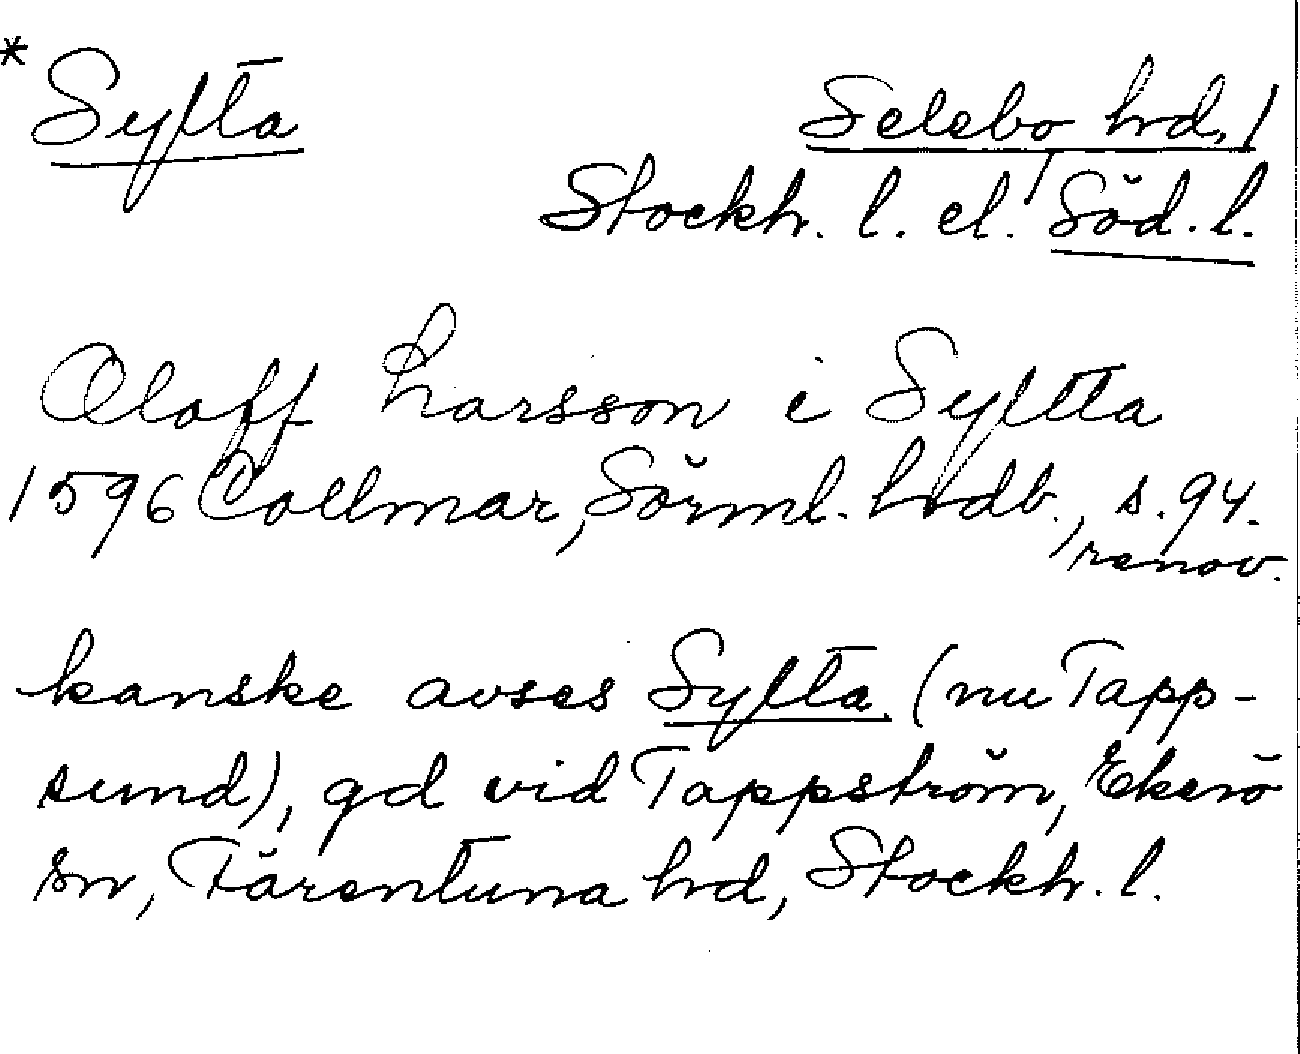 * Sylta
Selebo hrd,/
Stockh. l. el./ Söd. l.
Oloff Larsson i Syltta
1596 Collmar, Sörml. hrdb., s. 94.
renov.
kanske avses Sylta (nu Tapp-
sund), gd vid Tappström, Ekerö
sn, Färentuna hrd, Stockh. l.